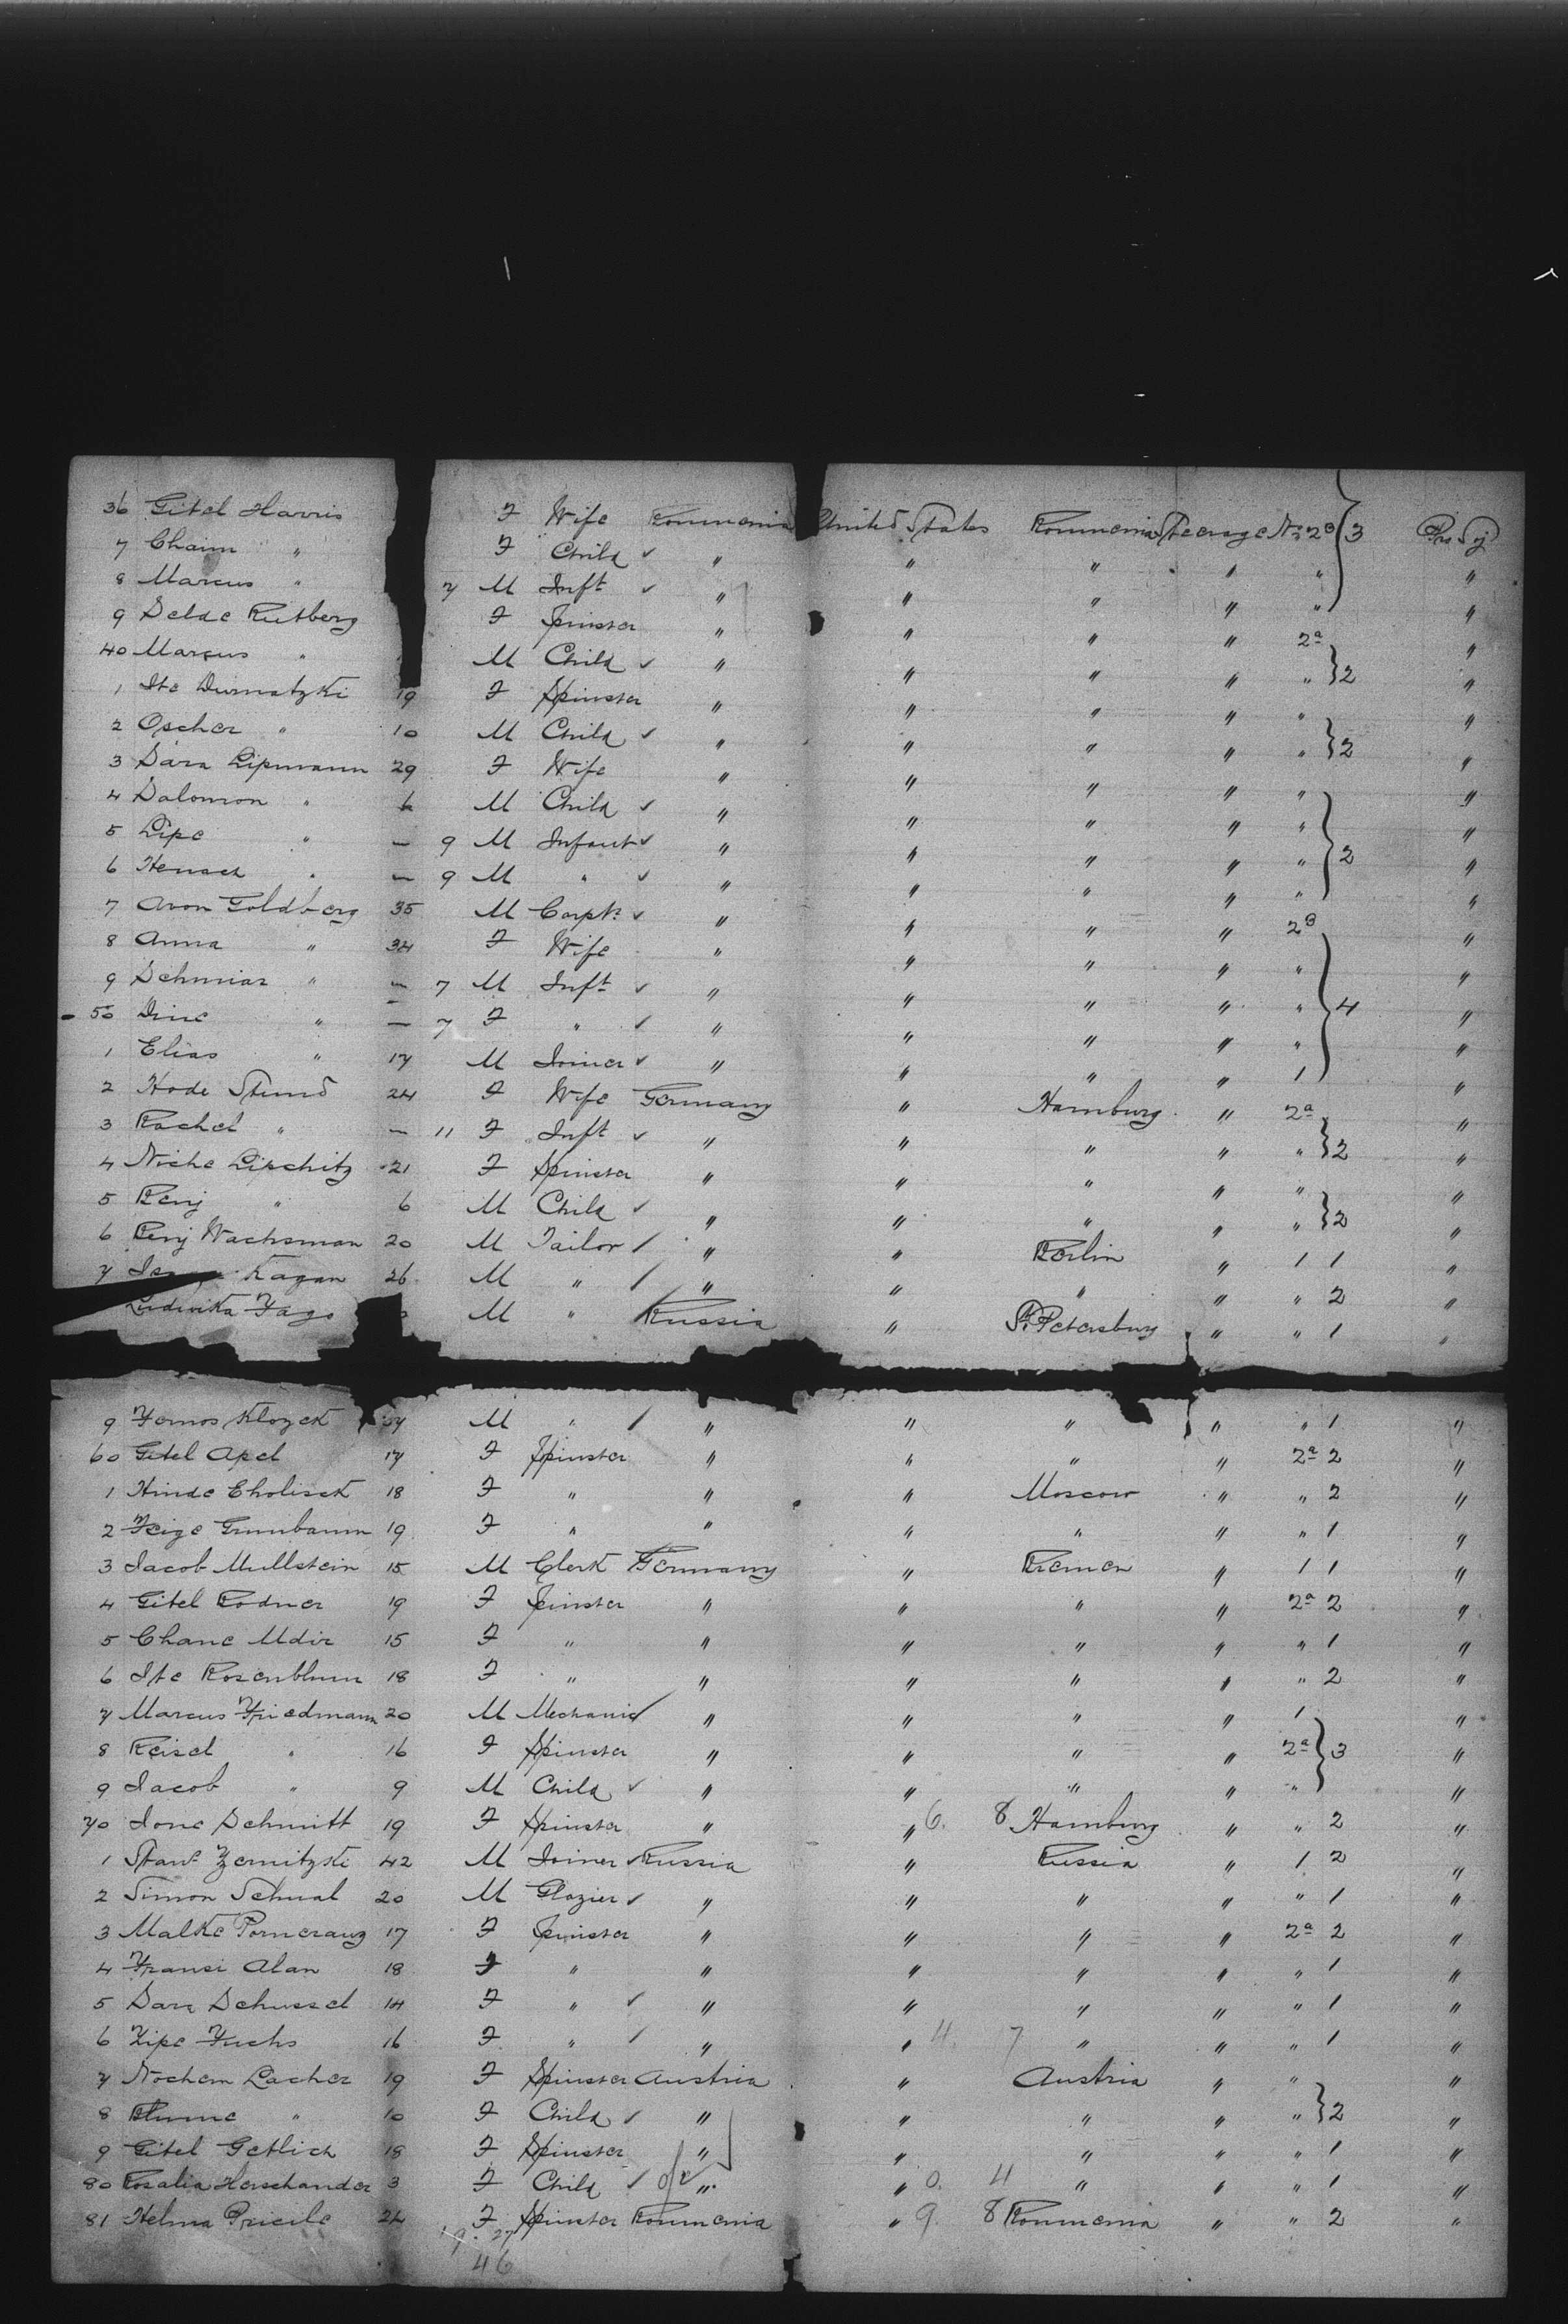 36 Gitel Harris F Wife Roumenia United States Roumenia Steerage No 2B 3
7 Chaim " F Child ✓ " " " " "
8 Marcus " 7 M Inft ✓ " " " " " "
9 Selde Rutberg F Spinster " " " " 2a "
40 Marcus " M Child ✓ " " " " " 2 "
1 Ite Durnatzki 19 F Spinster " " " " " "
2 Oscher " 10 M Child ✓ " " " " " 2 "
3 Sara Lipmann 29 F Wife " " " " " "
4 Salomon " 6 M Child ✓ " " " " " "
5 Lipe " — 9 M Infant ✓ " " " " " 2 "
6 " — 9 M " ✓ " " " " " "
7 Aron Goldberg 35 M Carptr ✓ " " " " 2B "
8 Anna " 34 F Wife " " " " " "
9 " — 7 M Inft ✓ " " " " " 4 "
50 Dine " — 7 F " ✓ " " " " " "
1 Elias " 17 M Joiner ✓ " " " " 1 "
2 Hode 24 F Wife Germany " Hamburg " 2a "
3 Rachel " — 11 F Inft ✓ " " " " " 2 "
4 Niche Lipchitz 21 F Spinster " " " " " "
5 Benj " 6 M Child ✓ " " " " " 2 "
6 Benj Wachsman 20 M Tailor / " " Berlin " 1 1 "
7 Kagan 26 M " / " " " " " 2 "
Ludwika M " / Russia " St Petersburg " " 1 "
9 M " / " " " " " 1 "
60 Gitel Apel 17 F Spinster " " " " 2a 2 "
1 Hinde Eholisck 18 F " " " Moscow " " 2 "
2 Feige Grunbaum 19 F " " " " " " 1 "
3 Jacob Mullstein 15 M Clerk Germany " Bremen " 1 1 "
4 Gitel Rodner 19 F Spinster " " " " 2a 2 "
5 Chane 15 F " " " " " " 1 "
6 Ite Rosenblum 18 F " " " " " " 2 "
7 Marcus Friedmann 20 M Mechanic / " " " " 1 "
8 Reisel " 16 F Spinster " " " " 2a 3 "
9 Jacob " 9 M Child ✓ " " " " " "
70 Schmitt 19 F Spinster " " 6. 8 Hamburg " " 2 "
1 Zernitzski 42 M Joiner ✓ Russia " Russia " 1 2 "
2 Simon Schual 20 M Glazier ✓ " " " " " 1 "
3 Malke Pomeranz 17 F Spinster " " " " 2a 2 "
4 Fransi Alan 18 F " " " " " " 1 "
5 Sara Schussel 14 F " ✓ " " " " " 1 "
6 Fuchs 16 F " / " " 4. 7 " " " 1 "
7 Nochem Lacher 19 F Spinster Austria " Austria " " "
8 Blume " 10 F Child ✓ " " " " " 2 "
9 Gitel Getlich 18 F Spinster " " " " " 1 "
80 Rosalia Herschander 3 F Child ✓ " " 0. 4 " " " 1 "
81 Helma 24 F Spinster Roumenia " 9. 8 Roumenia " " 2 "
19. 27
46